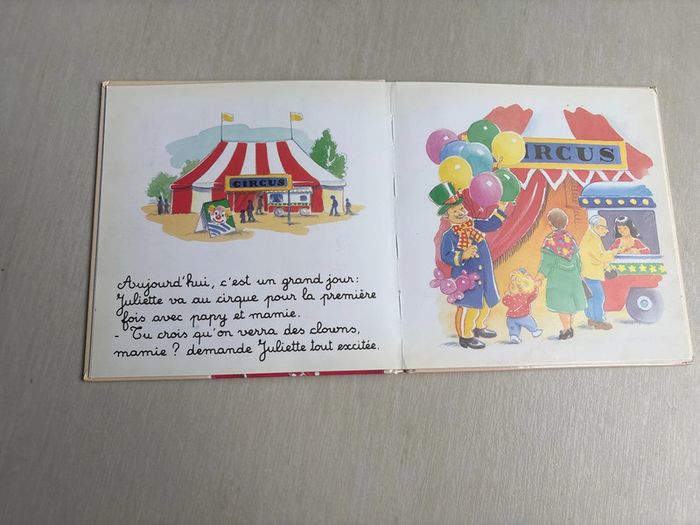 CIRCUS
Aujourd'hui, c'est un grand jour:
Juliette va au cirque pour la première
fois avec papy et mamie.
- Tu crois qu'on verra des clowns,
mamie ? demande Juliette tout excitée.
IRCUS